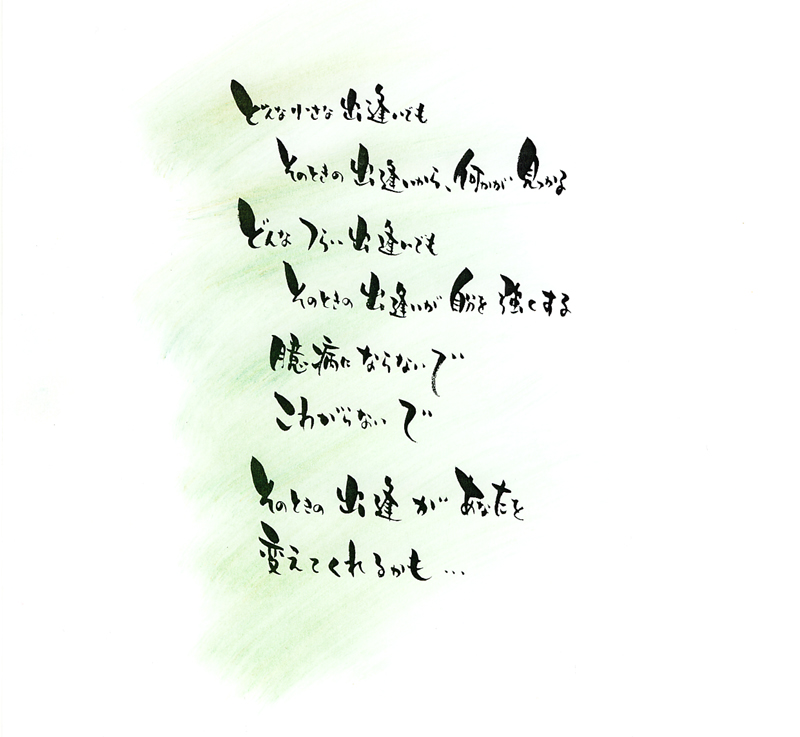 どんな小さな出逢いでも
そのときの出逢いから、何かが見つかる
どんなつらい出逢いでも
そのときの出逢いが自分を強くする
臆病にならないで
こわがらないで
そのときの出逢があなたを
変えてくれるかも…